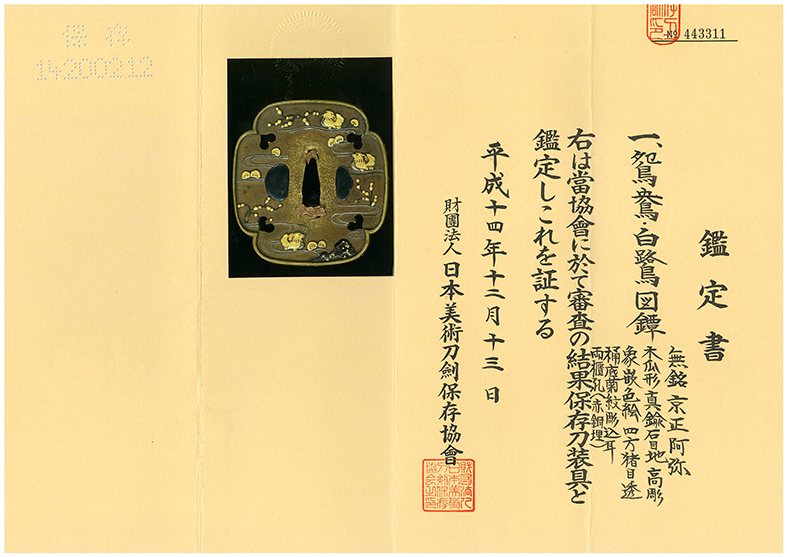 № 443311
鑑定書
一、鴛鴦白鷺図鐔
無銘 京正阿弥
木瓜形 真鍮石目地 高彫
象嵌色絵 四方猪目透
桶底菊紋彫込耳
両櫃孔(赤銅埋)
右は當協會に於て審査の結果保存刀装具と
鑑定しこれを証する
平成十四年十二月十三日
財團法人日本美術刀劍保存協會
保存
14200212